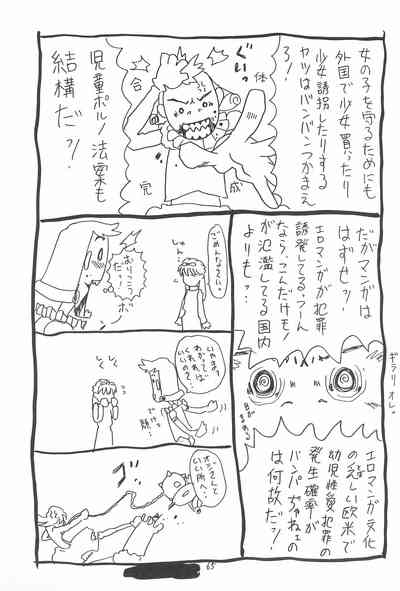 女の子を守るためにも
外国で少女買ったり
少女誘拐したりする
ヤツはバンバンつかまえ
ろ!
児童ポルノ法案も
結構だっ!
ぐいっ
合
体
完
成
だがマンガは
はずせっ!
エロマンガが犯罪
誘発してる、つーん
なら、こんだけエロ
が氾濫してる国内
よりも…
ギラリ オレ。
エロマンガ文化
の乏しい欧米で
幼児性愛犯罪の
発生確率が
バンパじゃねェの
は何故だ?
ごめんなさい…
しゅん…
おりこう
だっ!
ポ
いやまあ
わかって
くれれば
いいので…
でへっ
顔!
しく
しく
オシクシて
いい所…
ゴッ
65